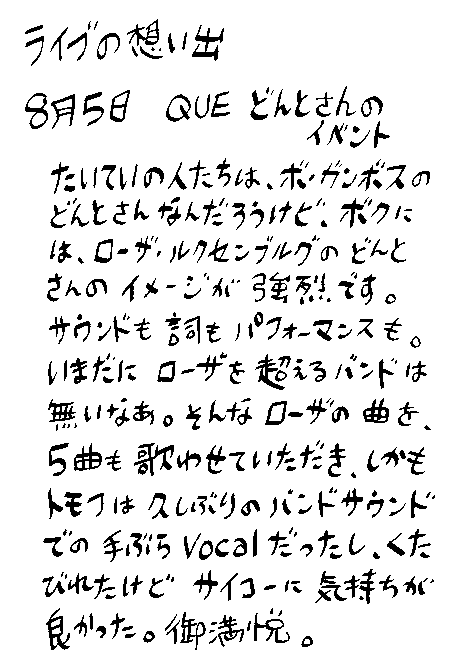 ライブの想い出
8月5日 QUE どんとさんの
イベント
たいていの人たちは、ボ・ガンボスの
どんとさんなんだろうけど、ボクに
は、ローザ・ルクセンブルグのどんと
さんの イメージが 強烈です。
サウンドも 詞も パフォーマンスも。
いまだに ローザを 超えるバンドは
無いなあ。そんな ローザの 曲を、
5曲も 歌わせていただき、しかも
トモフは 久しぶりの バンドサウンド
での 手ぶら Vocalだったし、くた
びれたけど サイコーに 気持ちが
良かった。御満悦。